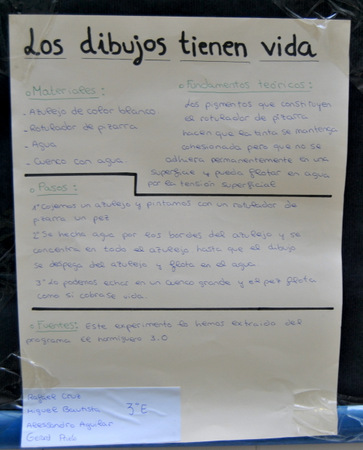 Los dibujos tienen vida
o Materiales:
- Azulejo de color blanco
- Rotulador de pizarra
- Agua
- Cuenco con agua
o Fundamentos teóricos:
Los pigmentos que constituyen
el rotulador de pizarra
hacen que la tinta se mantenga
cohesionada pero que no se
adhiera permanentemente en una
superficie y pueda flotar en agua
por la tensión superficial
o Pasos:
1º Cogemos un azulejo y pintamos con un rotulador de
pizarra un pez
2º Se hecha agua por los bordes del azulejo y se
concentra en todo el azulejo hasta que el dibujo
se despega del azulejo y flota en el agua
3º Lo podemos echar en un cuenco grande y el pez flota
como si cobrase vida.
o Fuentes: Este experimento lo hemos extraido del
programa el hormiguero 3.0
Rafael Cruz
Miguel Bautista
Alessandro Aguilar
3ºE